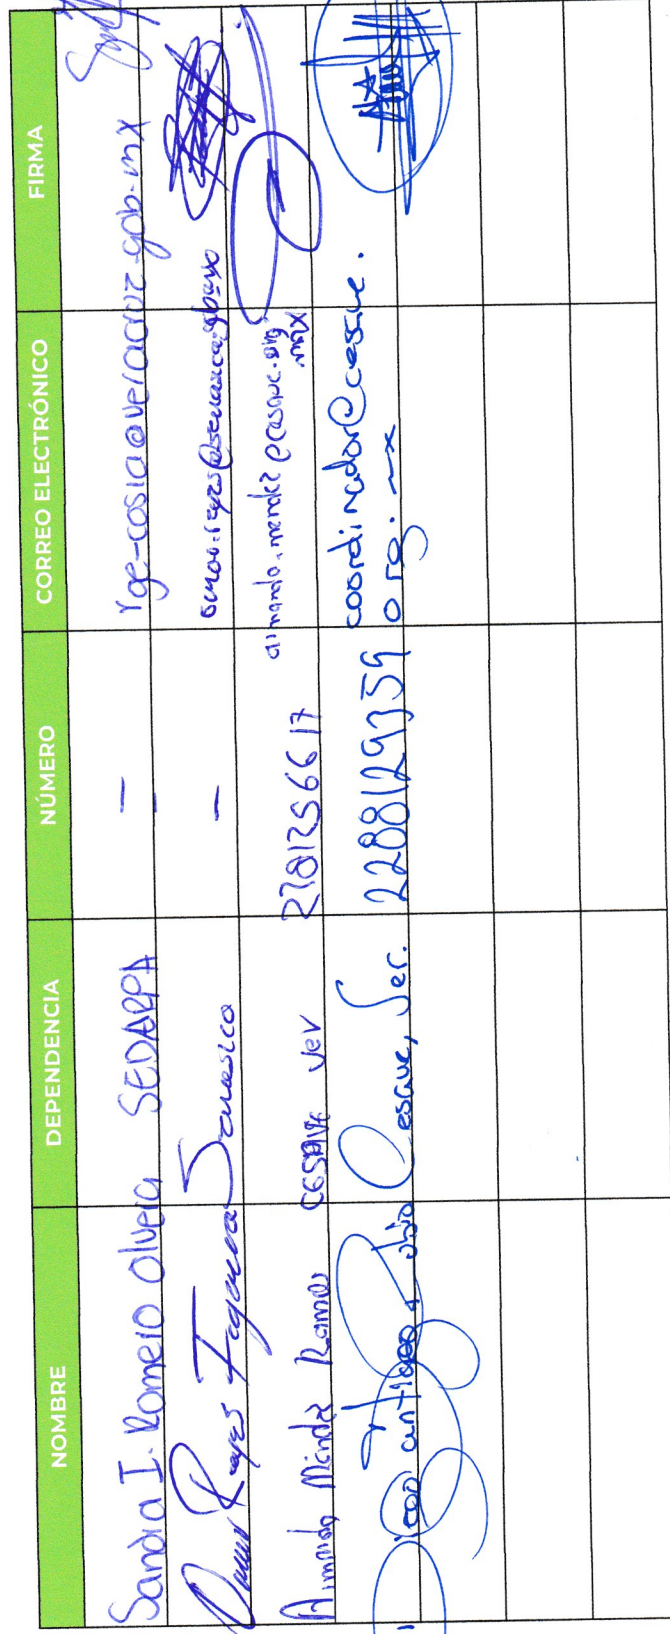 NOMBRE DEPENDENCIA NÚMERO CORREO ELECTRÓNICO FIRMA
Sandra I. Romero Olvera SEDARPA — rge-cosia@veracruz.gob.mx
Omar Reyes Figueroa Senasica —
Armando Méndez Ramos CESAVE Ver armando.mendez@cesave.org.mx
Cesave, Ver. 2288129359 coordinador@cesave.
org.mx